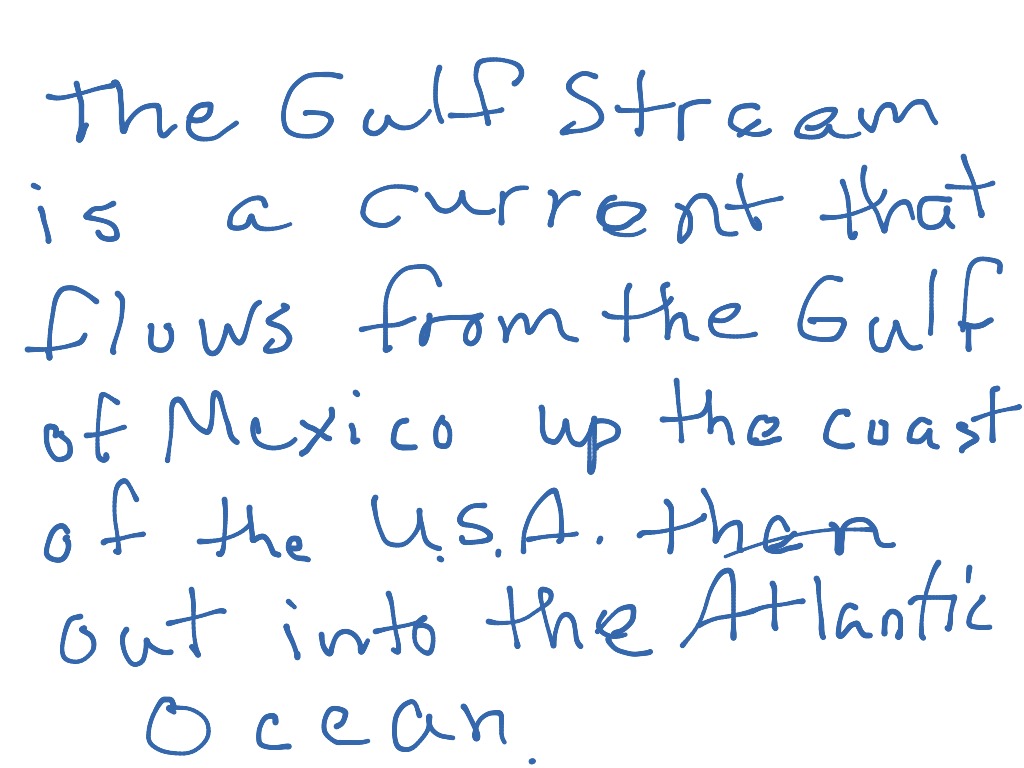 The Gulf Stream
is a current that
flows from the Gulf
of Mexico up the coast
of the U.S.A. then
out into the Atlantic
Ocean.